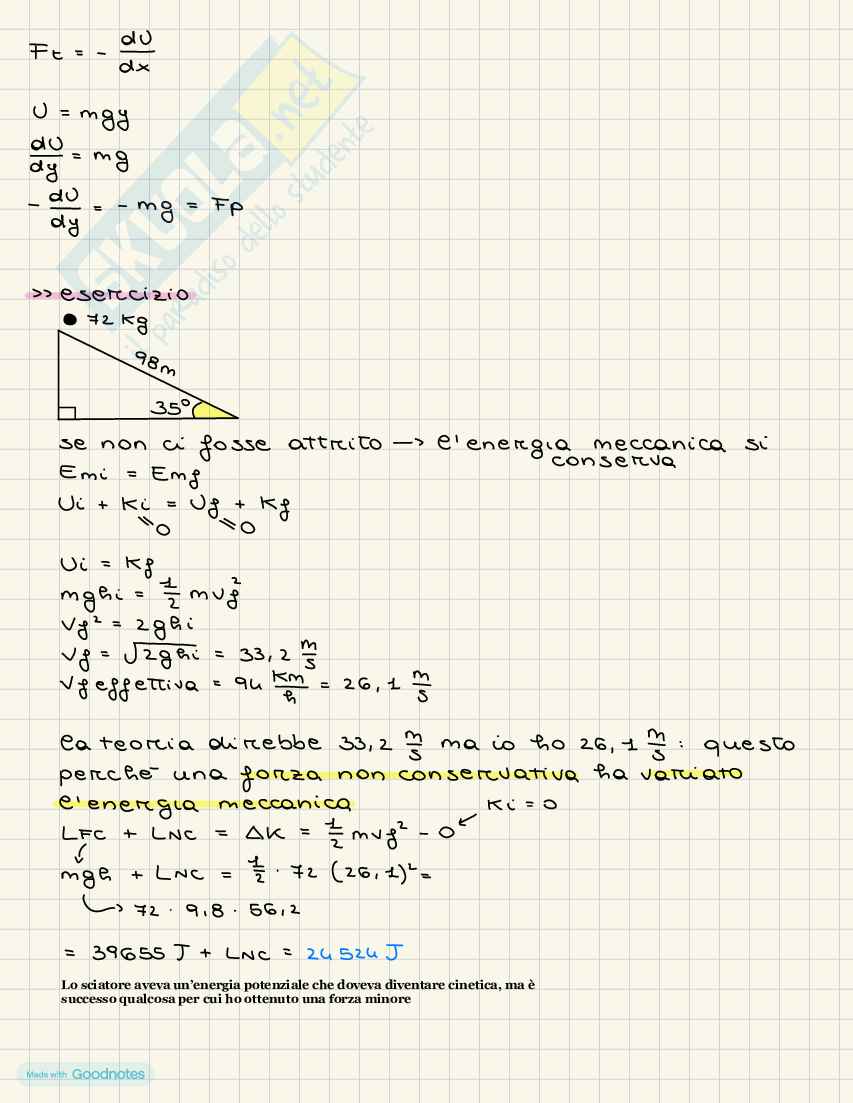 Ft = - dU/dx
U = mgy
dU/dy = mg
- dU/dy = - mg = Fp
>> esercizio
72 kg
98m
35°
se non ci fosse attrito → l'energia meccanica si
conserva
Emi = Emf
Ui + Ki = Uf + Kf
=0 =0
Ui = Kf
mghi = 1/2 mvf²
Vf² = 2ghi
Vf = √2ghi = 33,2 m/s
Vf effettiva = 94 km/h = 26,1 m/s
la teoria direbbe 33,2 m/s ma io ho 26,1 m/s : questo
perchè una forza non conservativa ha variato
l'energia meccanica
Ki = 0
LFC + LNC = ΔK = 1/2 mvf² - 0
mgh + LNC = 1/2 · 72 (26,1)² =
→ 72 · 9,8 · 56,2
= 39655 J + LNC = 24524 J
Lo sciatore aveva un'energia potenziale che doveva diventare cinetica, ma è
successo qualcosa per cui ho ottenuto una forza minore
SKUOLA.net
il paradiso dello studente
Made with Goodnotes